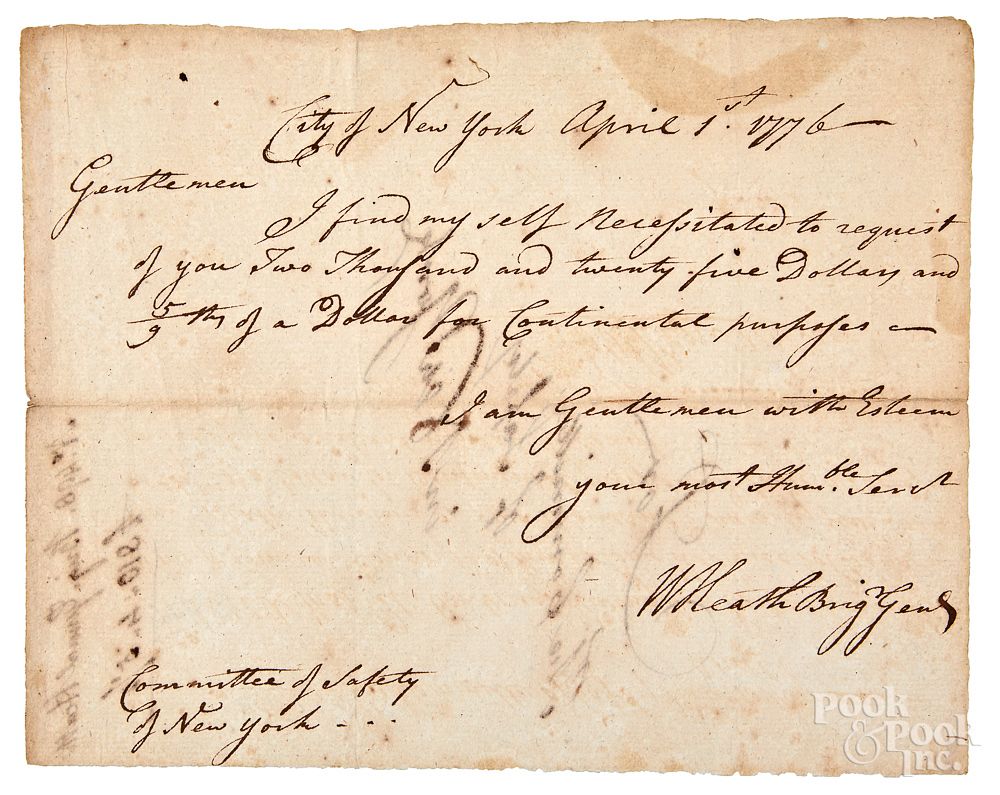 City of New York April 1st. 1776
Gentlemen
I find my self Necessitated to request
of you Two Thousand and twenty five Dollars and
5/9ths of a Dollar for Continental purposes
I am Gentlemen with Esteem
your most Humble. Servt
W Heath Brigr Genl
Committee of Safety
of New York - . .
POOK
& POOK
INC.